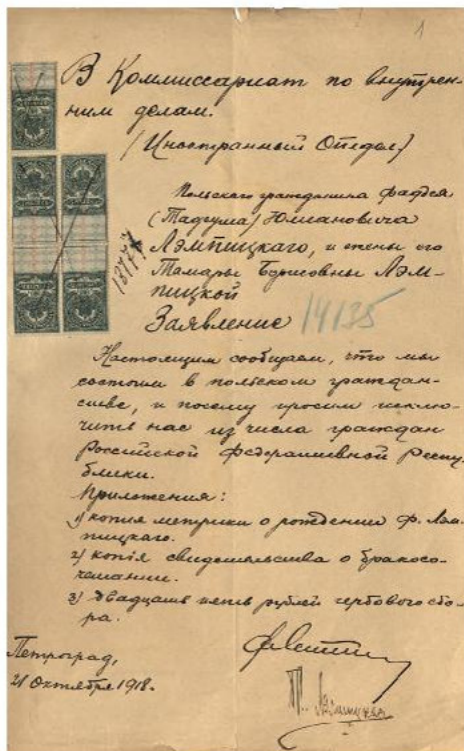 1
В Коммиссариат по внутрен-
ним делам.
(Иностранный Отдел)
Польского гражданина Фаддея
(Тадеуша) Юлиановича
Лэмпицкого, и жены его
Тамары Борисовны Лэм-
пицкой
Заявление 14135
Настоящим сообщаем, что мы
состоим в польском граждан-
стве, и посему просим исклю-
чить нас из числа граждан
Российской Федеративной Респу-
блики.
Приложения:
1) копия метрики о рождении Ф. Лэм-
пицкаго.
2) копія свидетельства о бракосо-
четании.
3) двадцать пять рублей гербового сбо-
ра.
Петроград,
21 Октября 1918.